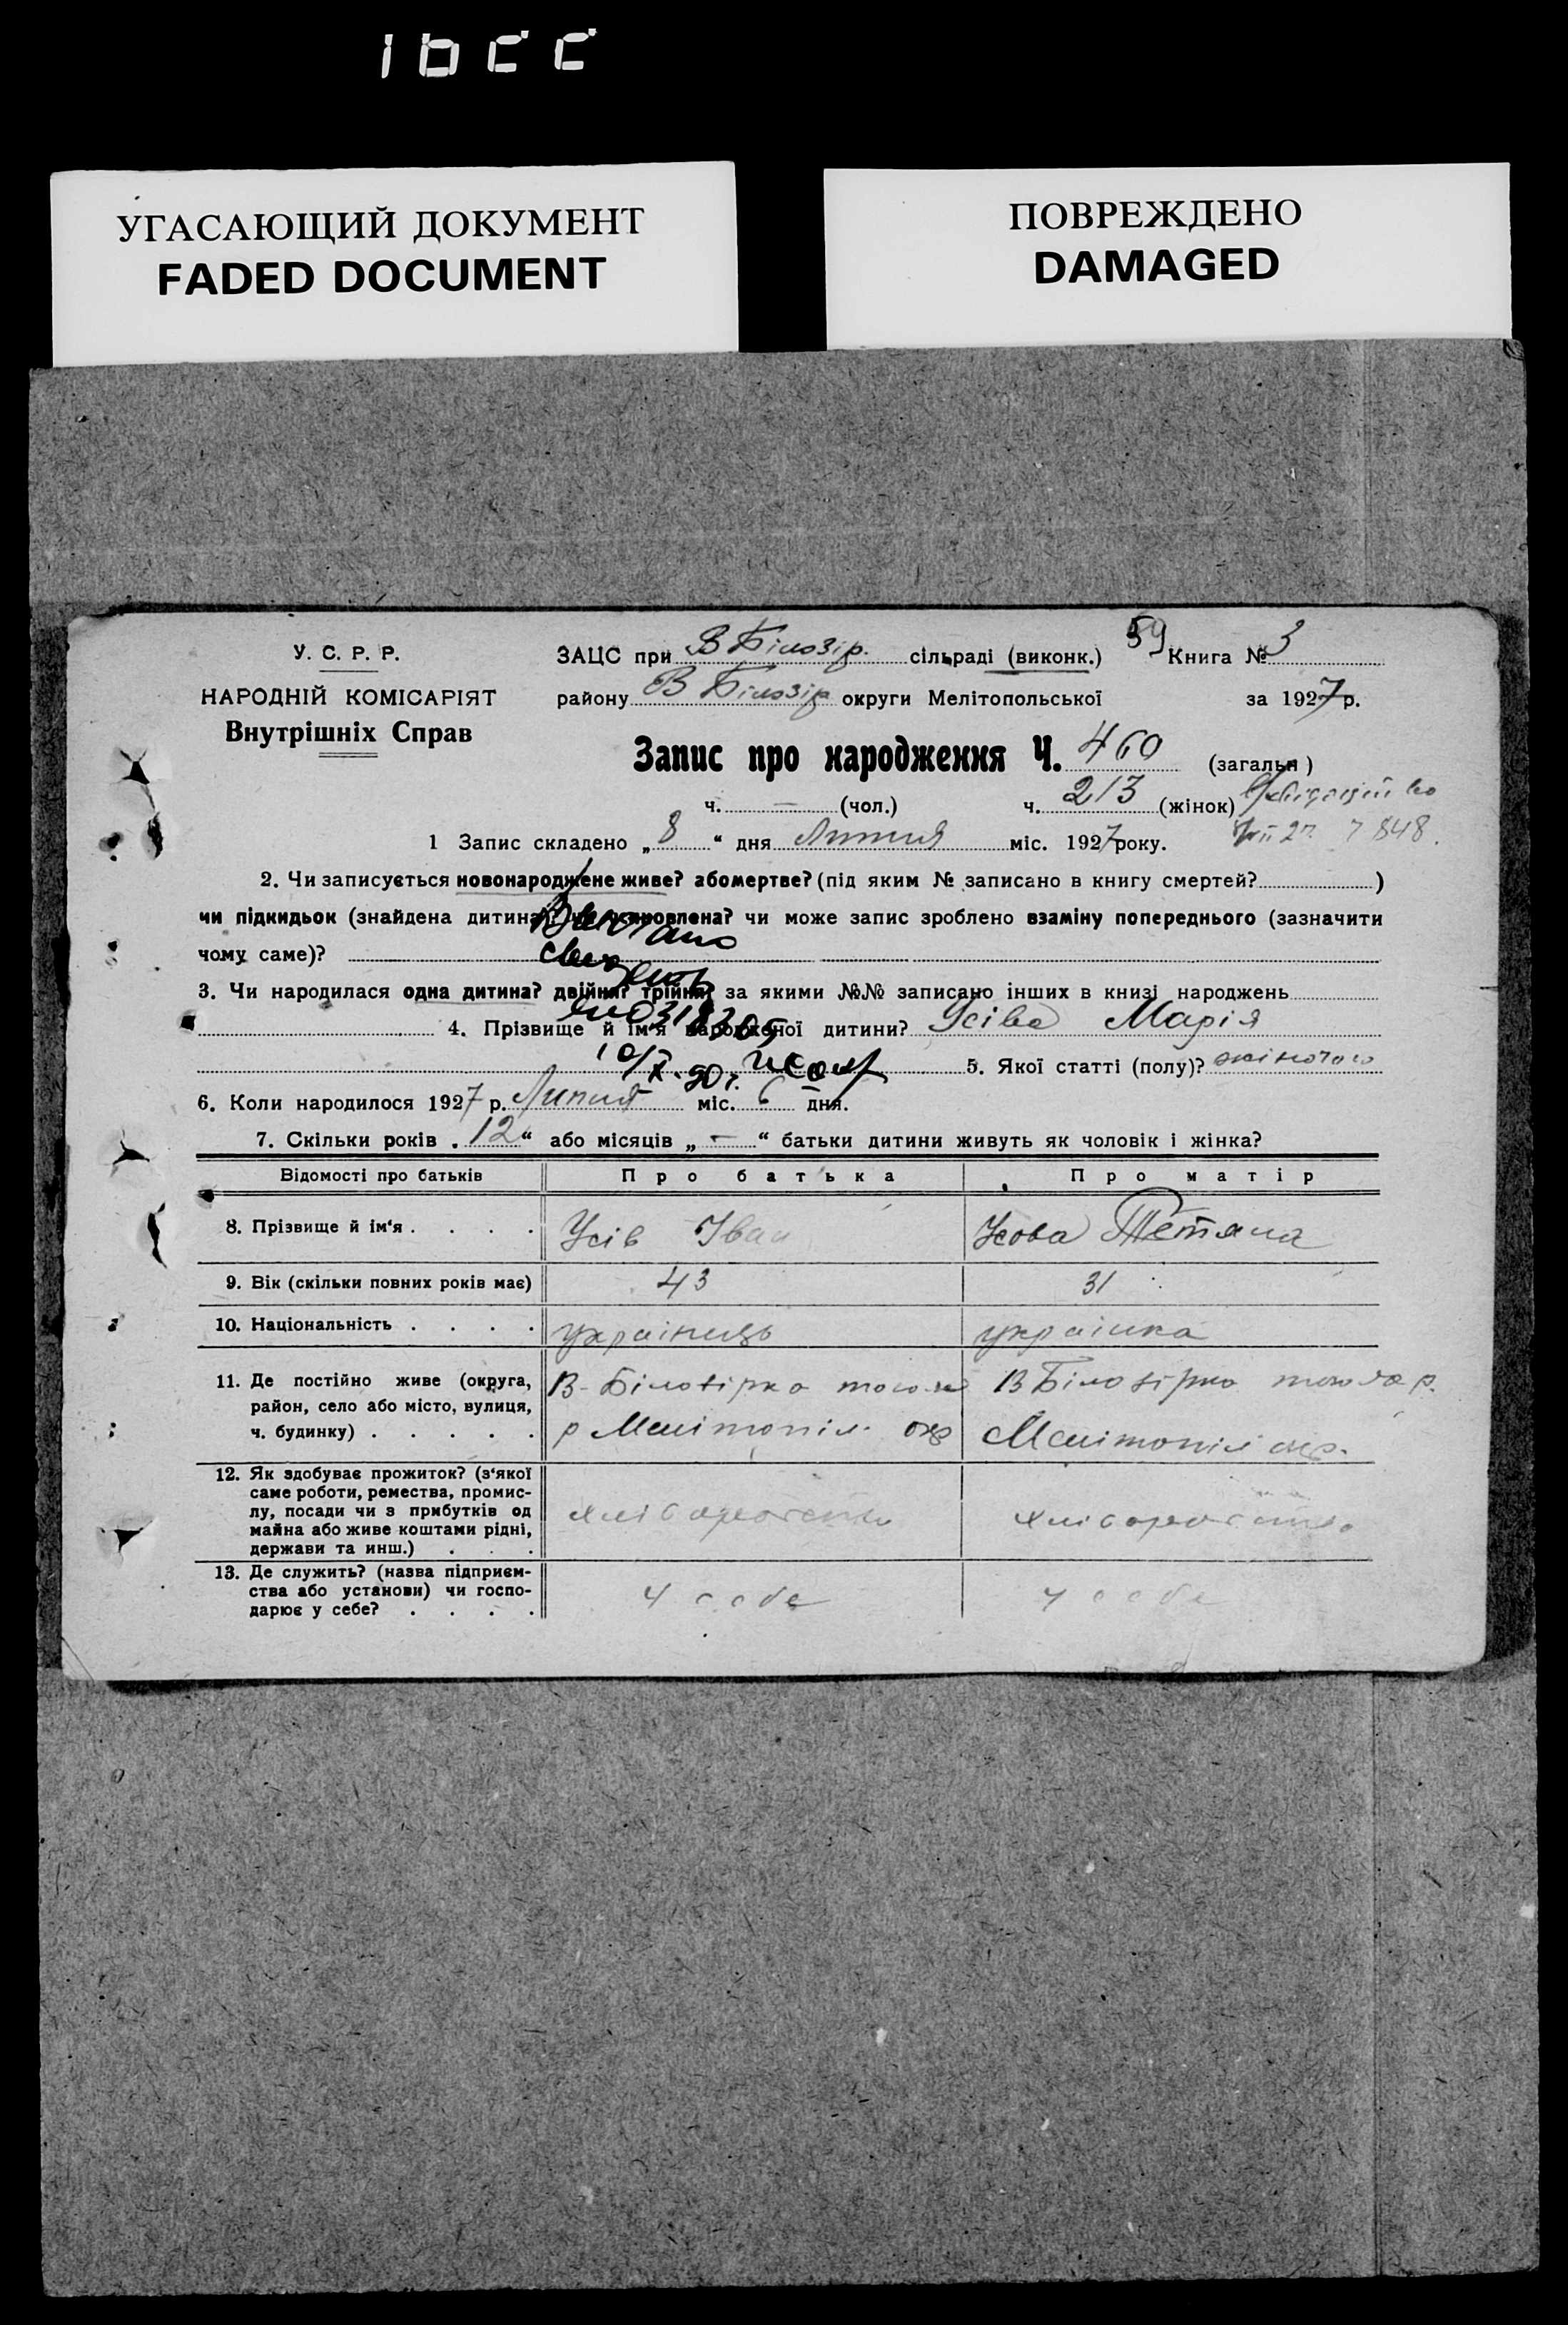 УГАСАЮЩИЙ ДОКУМЕНТ
FADED DOCUMENT
ПОВРЕЖДЕНО
DAMAGED
У. С. Р. Р.
НАРОДНІЙ КОМІСАРІЯТ
Внутрішніх Справ
ЗАЦС при В Білозір. сільраді (виконк.) 59 Книга № 3
району В Білозір округи Мелітопольської за 1927 р.
Запис про народження Ч. 460 (загальн)
ч. — (чол.) ч. 213 (жінок)
7848.
1 Запис складено „ 8 “ дня Липня міс. 1927 року.
2. Чи записується новонароджене живе? або мертве? (під яким № записано в книгу смертей? )
чи підкидьок (знайдена дитина) чи усиновлена? чи може запис зроблено взаміну попереднього (зазначити
чому саме)?
3. Чи народилася одна дитина? двійня? трійня? за якими №№ записано інших в книзі народжень
4. Прізвище й ім'я народженої дитини? Усіва Марія
5. Якої статті (полу)? жіночого
6. Коли народилося 1927 р. Липня міс. 6 дня.
7. Скільки років „ 12 “ або місяців „ — “ батьки дитини живуть як чоловік і жінка?
Відомості про батьків Про батька Про матір
8. Прізвище й ім'я . . . . Усів Іван Усова Тетяна
9. Вік (скільки повних років має) 43 31
10. Національність . . . . українець українка
11. Де постійно живе (округа,
район, село або місто, вулиця,
ч. будинку) . . . . .
В-Білозірка того ж
р Мелітопіл. окр
В Білозірка того ж р.
Мелітопіл окр.
12. Як здобуває прожиток? (з'якої
саме роботи, ремества, промис-
лу, посади чи з прибутків од
майна або живе коштами рідні,
держави та инш.) . . .
хліборобство хліборобство
13. Де служить? (назва підприєм-
ства або установи) чи госпо-
дарює у себе? . . . .
у себе у себе